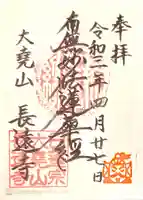 奉拝
令和三年四月廿七日
南無妙法蓮華経
大堯山
長遠寺